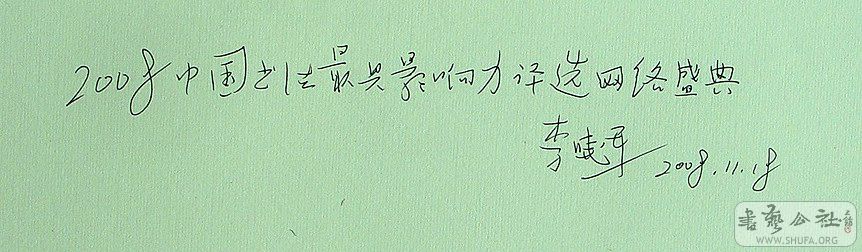 2008中国书法最具影响力评选网络盛典
李晓军 2008.11.18
書藝公社
WWW.SHUFA.ORG